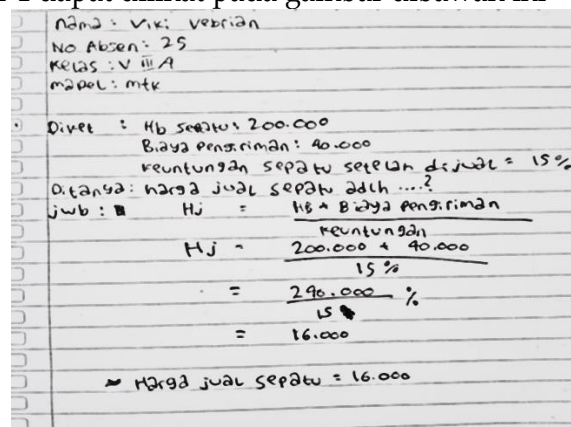 dapat dilihat pada gambar dibawah ini
nama : Viki Vebrian
No Absen : 25
Kelas : V III A
mapel : mtk
Diket : Hb sepatu : 200.000
Biaya Pengiriman : 40.000
keuntungan sepatu setelah dijual = 15%
Ditanya : harga jual sepatu adlh ....?
jwb : Hj = HB + Biaya Pengiriman
keuntungan
Hj = 200.000 + 40.000
15 %
= 240.000 %
15
= 16.000
Harga jual sepatu = 16.000